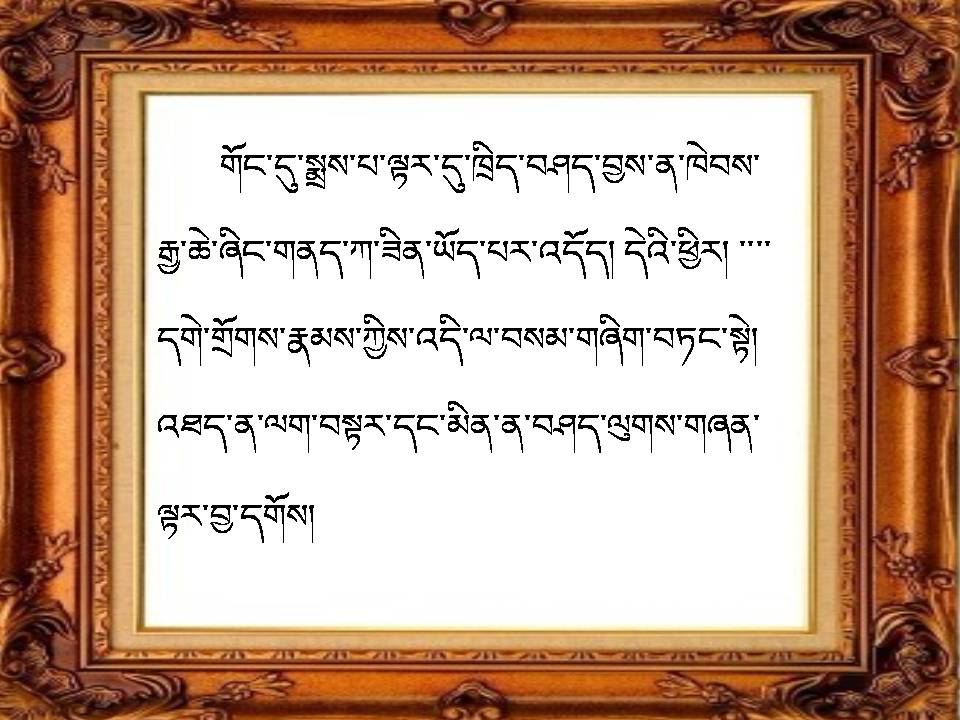 གོང་དུ་སྨྲས་པ་ལྟར་དུ་ཁྲིད་བཤད་བྱས་ན་ཁེབས་
རྒྱ་ཆེ་ཞིང་གནད་ཀ་ཟིན་ཡོད་པར་འདོད། དེའི་ཕྱིར། ་་་་
དགེ་གྲོགས་རྣམས་ཀྱིས་འདི་ལ་བསམ་གཞིག་བཏང་སྟེ།
འཐད་ན་ལག་བསྟར་དང་མིན་ན་བཤད་ལུགས་གཞན་
ལྟར་བྱ་དགོས།